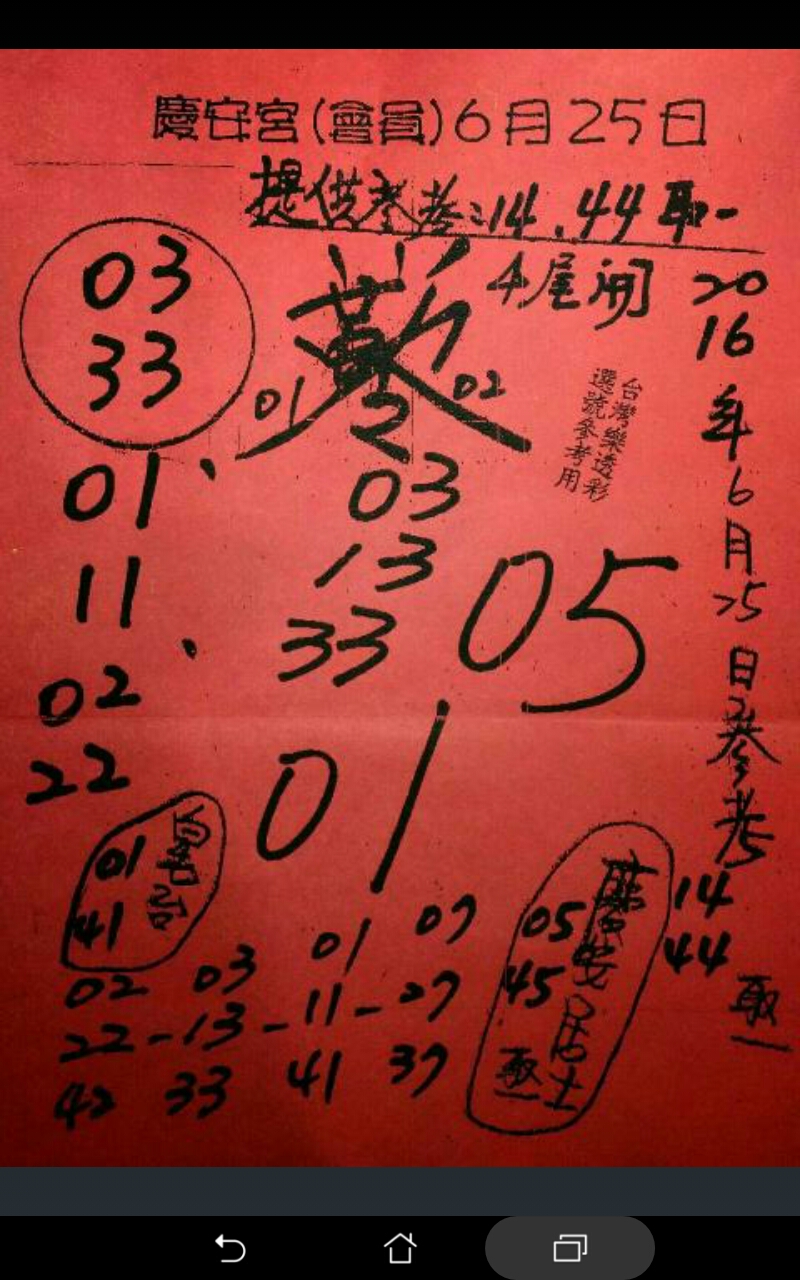 慶安宮(會員)6月25日
提供參考:14.44取一
4尾開
03
33
01
02
2
台灣樂透彩
選號參考用
2016年6月25日參考
14
44
取一
01、
11
02
22
03
13
33
05
01
01
41
02 03 01 07
22-13-11-27
42 33 41 37
05
45
慶安居士
取一